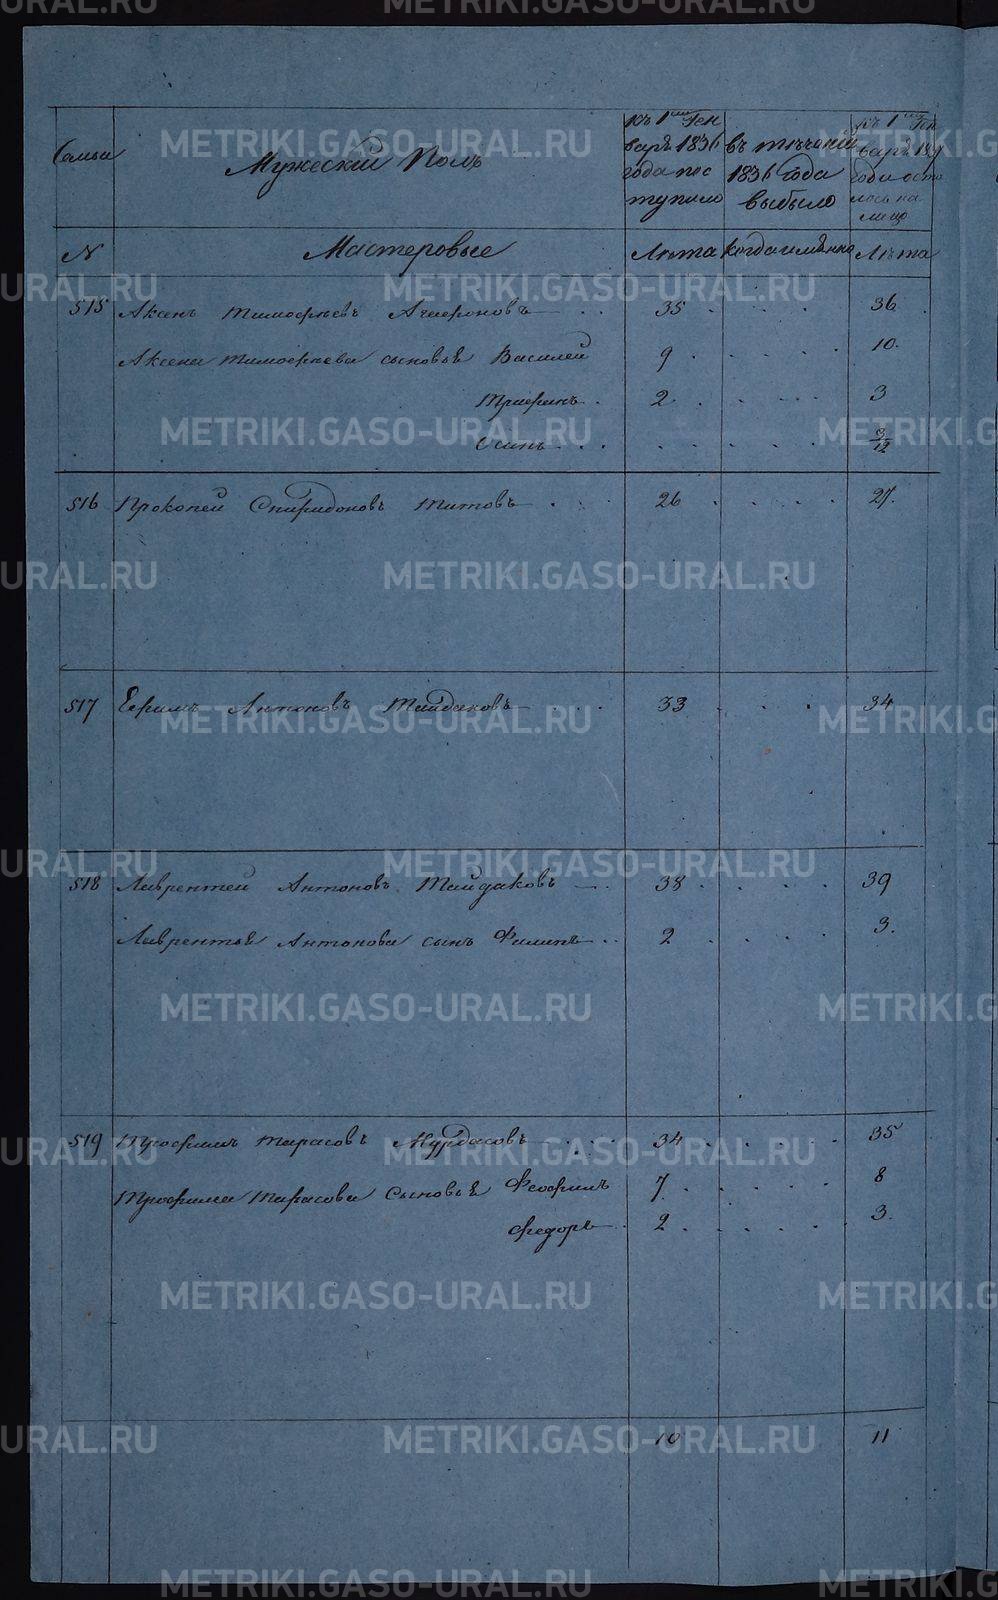 METRIKI.GASO-URAL.RU
Семьи
Мужескій Полъ
Къ 1му Ген
варя 1836
года пос
тупило
въ теченіи
1836 года
выбыло
къ 1му Ген
варя 1837
года оста
лось на
лицо
N
Мастеровые
Лѣта
Когда имянно
Лѣта
515 Аксенъ Тимофѣевъ Агафоновъ 35 36
Аксена Тимофѣева сыновья Василей 9 10.
Трифанъ 2 3
Осипъ 9/12
516 Прокопей Спиридоновъ Титовъ 26 27.
517 Ефимъ Антоновъ Тайдаковъ 33 34
518 Лаврентей Антоновъ Тайдаковъ 38 39
Лаврентья Антонова сынъ Филипъ 2 3.
519 Трофимъ Тарасовъ Мурдасовъ 34 35
Трофима Тарасова Сыновья Феофилъ 7 8
Федоръ 2 3.
10 11